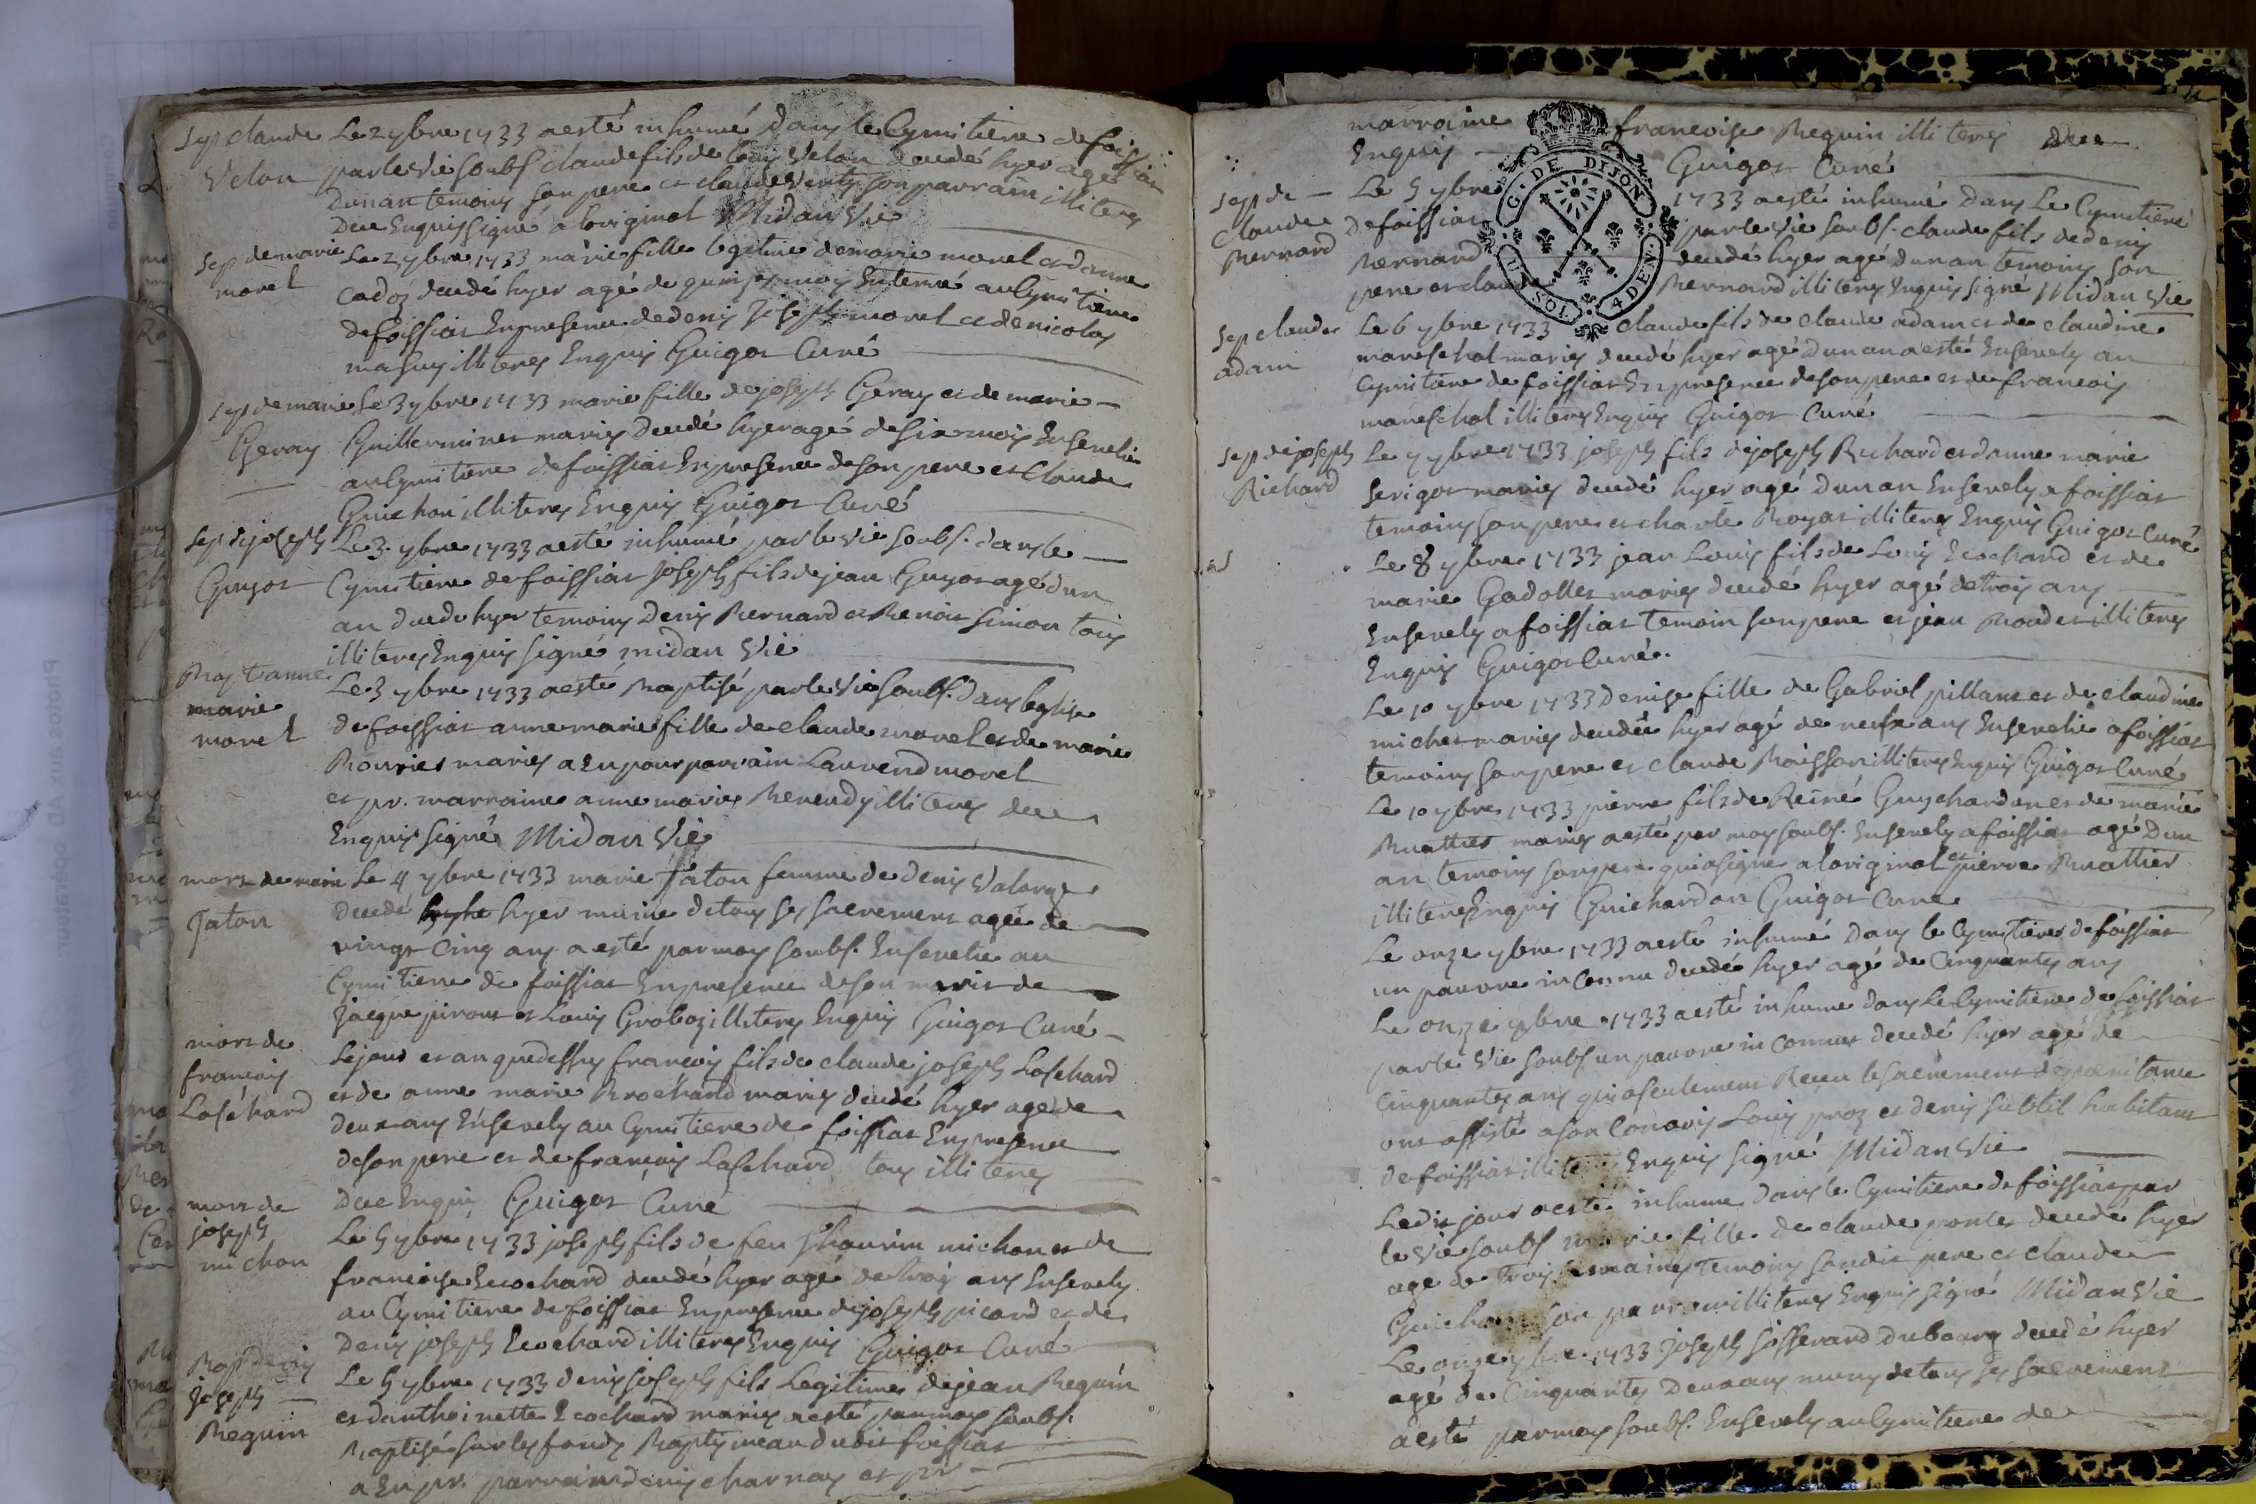 Sep claude Le 2 7bre 1733 a esté inhumé dans le Cymitiere de foissiat
Velon par le vic soubs. claude fils de Louis Velon decedé hyer agé
dun an temoins son pere et claude son parrain illiteres
Dece Enquis signé a loriginal Midan Vic
Sep de marie Le 2 7bre 1733 marie fille legitime de marie morel et danne
morel Cadoz decedé hyer agé de quinze mois Enterré au Cymitiere
de foissiat En presence de denis Joseph morel et de nicolas
masuy illiteres Enquis Guigot Curé
sep de marie Le 3 7bre 1733 marie fille de joseph Geray et de marie
Geray Guillerminet mariés decedé hyer agé de six mois Ensevelie
au Cymitiere de foissiat En presence de son pere et Claude
Guichon illiteres Enquis Guigot Curé
Sep de joseph Le 3 7bre 1733 a esté inhumé par le vic soubs. dans le
Guyot Cymitiere de foissiat Joseph fils de jean Guyot agé dun
an decedé hyer temoins Denis Bernard et Benoit Simon tous
illiteres Enquis signé midan Vic
Bap tanne Le 3 7bre 1733 a esté Baptisé par le Vic soubs. dans leglise
marie de foissiat anne marie fille de claude morel et de marie
morel Bouvier mariés a Eu pour parrain Laurend morel
et pr. marraine anne marie Berendy illiteres dece
Enquis signé Midan Vic
mort de marie Le 4 7bre 1733 marie Jaton femme de denis
Jaton decedé hyer munie de tous ses sacrements agée de
vingt Cinq ans a esté par moy soubs. Ensevelie au
Cymitiere de foissiat En presence de son maris de
Jacque pirout et Louis Groboz illiteres Enquis Guigot Curé
mort de Le jour et an que dessus francois fils de claude joseph Laschard
francois et de anne marie Brochand mariés decedé hyer agé de
Laschard deux ans Ensevely au Cymitiere de foissiat En presence
de son pere et de francois Laschard tous illiteres
dece Enquis Guigot Curé
mort de Le 5 7bre 1733 joseph fils de feu michon et de
joseph francoise Ecochard decedé hyer agé de trois ans Ensevely
michon au Cymitiere de foissiat En presence de joseph picard et de
Denis joseph Ecochard illiteres Enquis Guigot Curé
Bap denis Le 5 7bre 1733 denis joseph fils Legitime de jean Reguin
joseph et danthoinette Ecochard mariés a esté par moy soubs.
Reguin Baptisé sur les fonds Baptismeau dudit foissiat
a Eu pr. parrain denis charnay et pr
marraine francoise Reguin illiteres dece
Enquis Guigot Curé
G. DE DIJON
U SOL 4 DEN.
sep de Le 5 7bre 1733 a esté inhumé dans Le Cymitiere
Claude de foissiat par le vic soubs. claude fils de denis
Bernard Bernard decedé hyer agé dun an temoins son
pere et claude Bernard illiteres Enquis signé Midan Vic
Sep claude Le 6 7bre 1733 claude fils de claude adam et de claudine
adam mareschal mariés decedé hyer agé dun an a esté Ensevely au
Cymitiere de foissiat En presence de son pere et de francois
mareschal illiteres Enquis Guigot Curé
sep de joseph Le 7 7bre 1733 joseph fils de joseph Richard et danne marie
Richard Serigot mariés decedé hyer agé dun an Ensevely a foissiat
temoins son pere et charle Royat illiteres Enquis Guigot Curé
Le 8 7bre 1733 jean Louis fils de Louis Ecochard et de
marie Gadollet mariés decedé hyer agé de trois ans
Ensevely a foissiat temoin son pere et jean Rondet illiteres
Enquis Guigot Curé.
Le 10 7bre 1733 Denise fille de Gabriel pillant et de claudine
michet mariés decedée hyer agé de neuf ans Ensevelie a foissiat
temoins son pere et claude Boisson illiteres Enquis Guigot Curé
Le 10 7bre 1733 pierre fils de Reiné Guychardon et de marie
Buattier mariés a esté par moy soubs. Ensevely a foissiat agé dun
an temoins son pere qui a signé a loriginal et pierre Buattier
illiteres Enquis Guichardon Guigot Curé
Le onze 7bre 1733 a esté inhumé dans le Cymitiere de foissiat
un pauvre inconnu decedé hyer agé de Cinquante ans
Le onze 7bre 1733 a esté inhumé dans le Cymitiere de foissiat
par le Vic soubs un pauvre inconnu decedé hyer agé de
cinquante ans qui a seulement Receu le sacrement de penitance
ont assisté a son Convois Louis proz et denis subtil habitans
de foissiat illiteres Enquis signé Midan Vic
Ledit jour a esté inhumé dans le Cymitiere de foissiat par
le vic soubs marie fille de claude ponte decedé hyer
agé de trois semaines temoins sondit pere et claude
Guichon son parrain illiteres Enquis signé Midan Vic
Le onze 7bre 1733 Joseph Joffrerand Dubourg decedé hyer
agé de Cinquante deux ans muny de tous ses sacrement
a esté par moy soubs. Ensevely au Cymitiere de